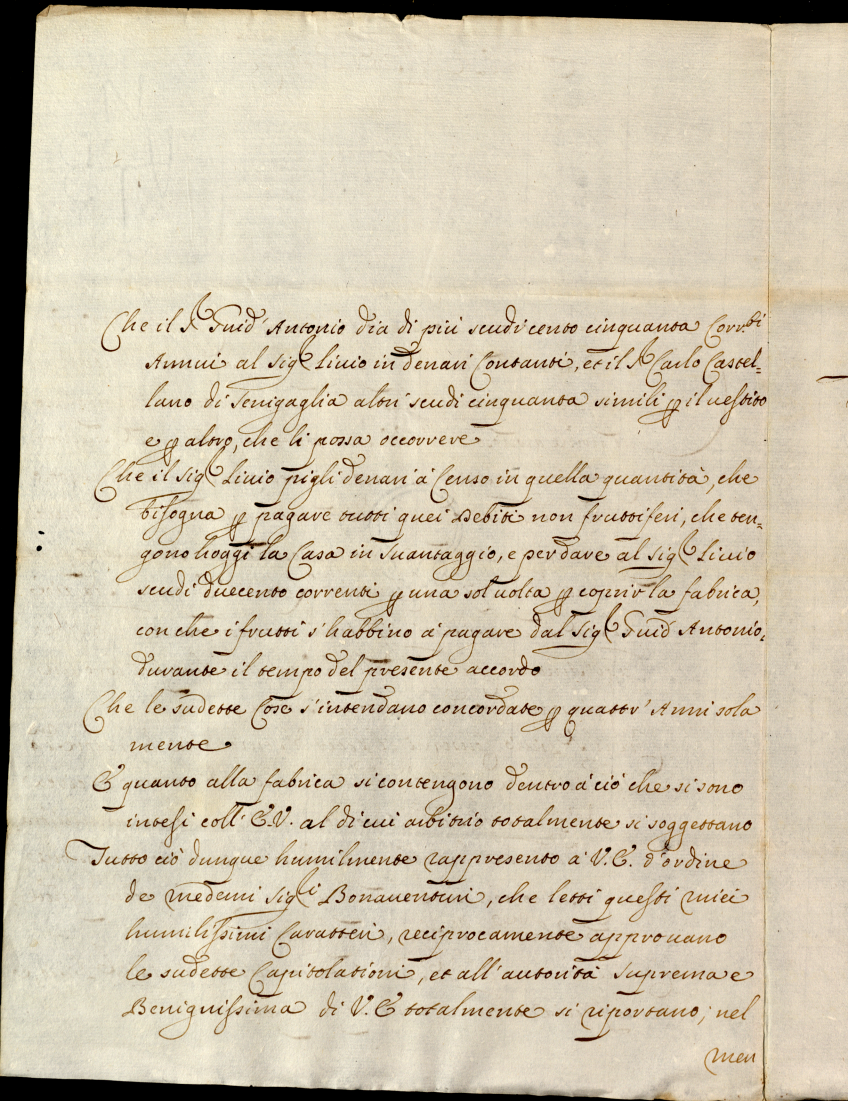 Che il Sr Guid' Antonio dia di più scudi cento cinquanta Corr.di
Annui al Sigr Liuio in denari Contanti, et il Sr Carlo Castel=
lano di Senigaglia altri scudi cinquanta simili p il uestito
e p altro, che li possa occorrere
Che il Sigr Liuio pigli denari à Censo in quella quantità, che
bisogna p pagare tutti quei Debiti non fruttiferi, che ten=
gono hoggi la Casa in suantaggio, e per dare al Sigr Liuio
scudi duecento correnti p una sol uolta p coprir la fabrica,
con che i frutti s'habbino à pagare dal Sigr Guid Antonio,
durante il tempo del presente accordo
Che le sudette Cose s'intendano concordate p quattr' Anni sola
mente
E quanto alla fabrica si contengono dentro à ciò che si sono
intesi coll' E.V. al di cui arbitrio totalmente si soggettano
Tutto ciò dunque humilmente rappresento à V.E. d'ordine
de medemi Sigri Bonauenturi, che letti questi miei
humilissimi Caratteri, reciprocamente approuano
le sudette Capitolationi, et all' autorità suprema e
Benignissima di V.E totalmente si riportano; nel
men